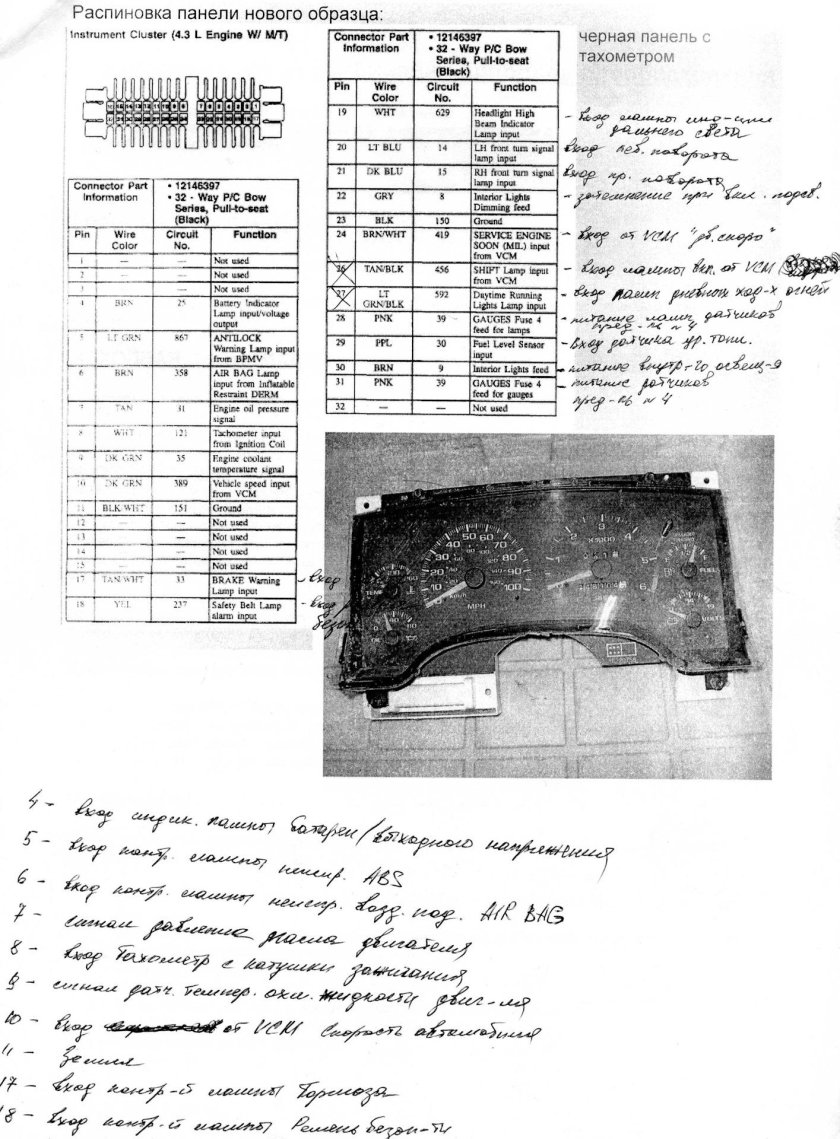 Распиновка панели нового образца:
Instrument Cluster (4.3 L Engine W/ M/T)
Connector Part Information
• 12146397
• 32 - Way P/C Bow Series, Pull-to-seat (Black)
Pin Wire Color Circuit No. Function
1 — — Not used
2 — — Not used
3 — — Not used
4 BRN 25 Battery Indicator Lamp input/voltage output
5 LT GRN 867 ANTILOCK Warning Lamp input from BPMV
6 BRN 358 AIR BAG Lamp input from Inflatable Restraint DERM
7 TAN 31 Engine oil pressure signal
8 WHT 121 Tachometer input from Ignition Coil
9 DK GRN 35 Engine coolant temperature signal
10 DK GRN 389 Vehicle speed input from VCM
11 BLK/WHT 151 Ground
12 — — Not used
13 — — Not used
14 — — Not used
15 — — Not used
17 TAN/WHT 33 BRAKE Warning Lamp input - вход
18 YEL 237 Safety Belt Lamp alarm input - вход
Connector Part Information
• 12146397
• 32 - Way P/C Bow Series, Pull-to-seat (Black)
Pin Wire Color Circuit No. Function
19 WHT 629 Headlight High Beam Indicator Lamp input
20 LT BLU 14 LH front turn signal lamp input
21 DK BLU 15 RH front turn signal lamp input
22 GRY 8 Interior Lights Dimming feed
23 BLK 150 Ground
24 BRN/WHT 419 SERVICE ENGINE SOON (MIL) input from VCM
26 TAN/BLK 456 SHIFT Lamp input from VCM
27 LT GRN/BLK 592 Daytime Running Lights Lamp input
28 PNK 39 GAUGES Fuse 4 feed for lamps
29 PPL 30 Fuel Level Sensor input
30 BRN 9 Interior Lights feed
31 PNK 39 GAUGES Fuse 4 feed for gauges
32 — — Not used
черная панель с
тахометром
- вход лампы
дальнего света
вход лев. поворота
вход пр. поворота
- затемнение при вкл. подсв.
- вход от VCM "дв. скоро"
- вход лампы вкл. от VCM
- вход ламп дневных ход-х огней
- питание ламп датчиков
пред-ль № 4
- вход датчика ур. топл.
- питание внутр-го освещ-я
- питание датчиков
пред-ль № 4
MPH
X1000
TEMP
FUEL
VOLTS
4 - вход индик. лампы батареи/выходного напряжения
5 - вход контр. лампы неиспр. ABS
6 - вход контр. лампы неиспр. возд. под. AIR BAG
7 - сигнал давление масла двигателя
8 - вход Тахометр с катушки зажигания
9 - сигнал датч. темпер. охл. жидкости двиг-ля
10 - вход от VCM скорость автомобиля
11 - Земля
17 - вход контр-й лампы Тормоза
18 - вход контр-й лампы Ремень безоп-ти